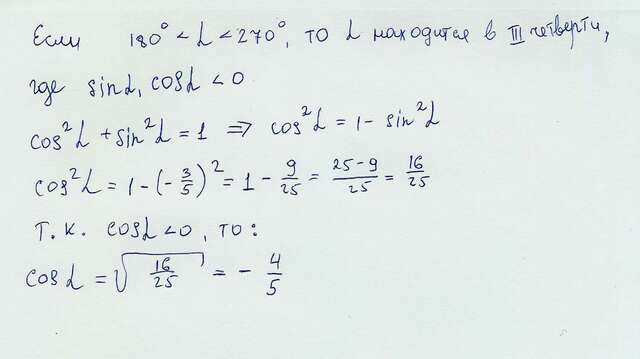 Если 180° < α < 270°, то α находится в III четверти,
где sinα, cosα < 0
cos²α + sin²α = 1 ⇒ cos²α = 1 - sin²α
cos²α = 1 - (-3/5)² = 1 - 9/25 = (25-9)/25 = 16/25
Т.к. cosα < 0, то:
cosα = √(16/25) = - 4/5